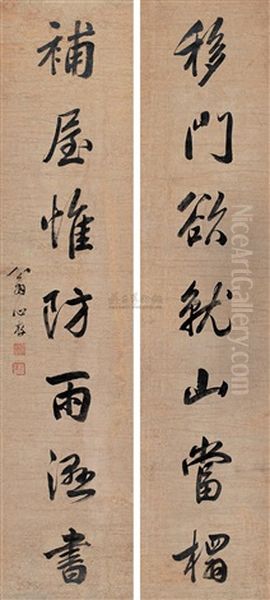 移門欲就山當榻
補屋惟防雨溼書
翁心存
NiceArtGallery.com